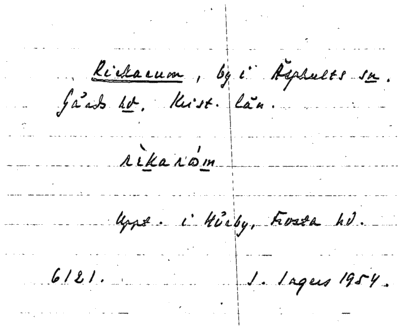 Rickarum, by i Äsphults sn.
Gärds hd, Krist. län.
rìkaróm
Uppt. i Hörby, Frosta hd.
6121. J. Ingers 1954.